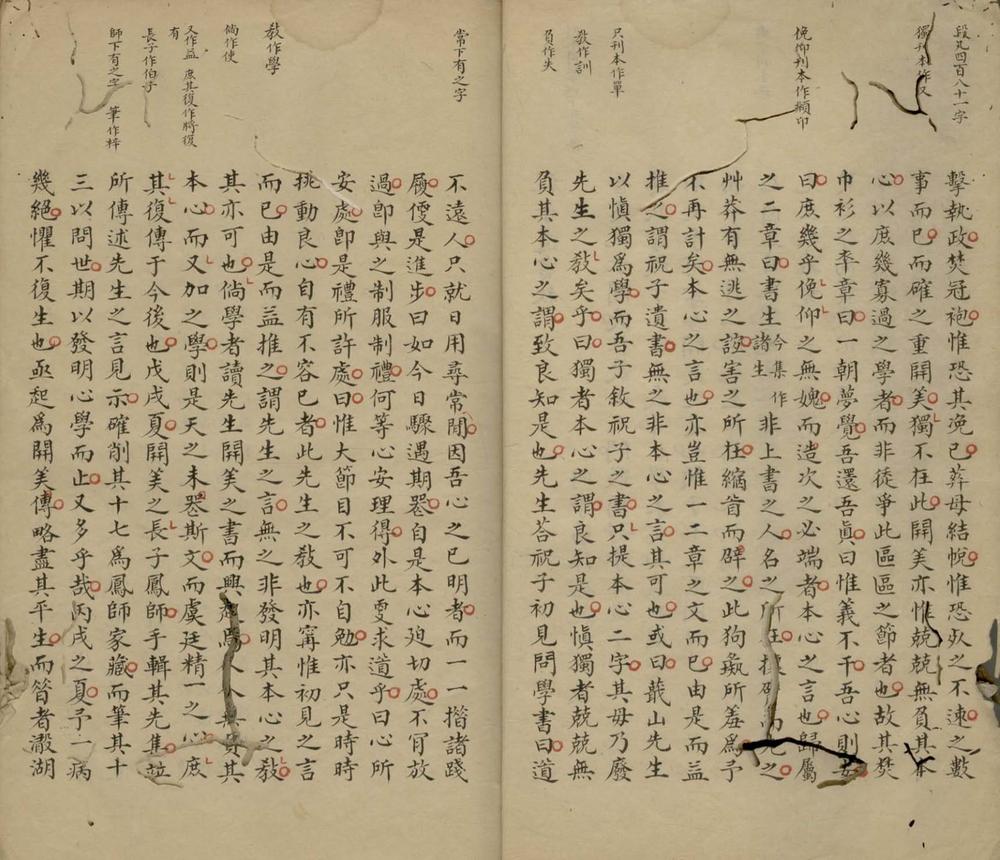 段凡四百八十一字
獨刊本作又
俛仰刋本作頫卬
只刊本作單
敎作訓
負作失
擊執政焚冠袍惟恐其浼已葬母結帨惟恐歿之不速之數
事而已而確之重開美獨不在此開美亦惟兢兢無負其本
心以庶幾寡過之學者而非徒爭此區區之節者也故其焚
巾衫之卒章曰一朝夢覺吾還吾眞曰惟義不干吾心則安
曰庶幾乎俛仰之無媿而造次之必端者本心之言也歸屬
之二章曰書生今集作諸生非上書之人名之所在
艸莽有無逃之誼害之所在縮首而辟之此狗彘所羞爲予
不再計矣本心之言也亦豈惟一二章之文而已由是而益
推之謂祝子遺書無之非本心之言其可也或曰蕺山先生
以愼獨爲學而吾子敘祝子之書只提本心二字其毋乃廢
先生之敎矣乎曰獨者本心之謂良知是也愼獨者兢兢無
負其本心之謂致良知是也先生荅祝子初見問學書曰道
常下有之字
敎作學
倘作使
又作益 庶其復作將復有
長子作伯子
師下有之字 筆作梓
不遠人只就日用尋常間因吾心之已明者而一一措諸踐
履便是進步曰如今日驟遇期喪自是本心迫切處不肎放
過卽與之制服制禮何等心安理得外此更求道乎曰心所
安處卽是禮所許處曰惟大節目不可不自勉亦只是時時
挑動良心自有不容已者此先生之敎也亦寗惟初見之言
而已由是而益推之謂先生之言無之非發明其本心之敎
其亦可也倘學者讀先生開美之書而興起焉人人無負其
本心而又加之學則是天之未喪斯文而虞廷精一之心庶
其復傳于今後也戊戌夏開美之長子鳳師手輯其先集竝
所傳述先生之言見示確削其十七爲鳳師家藏而筆其十
三以問世期以發明心學而止又多乎哉丙戌之夏予一病
幾絕懼不復生也亟起爲開美傳略盡其平生而簮者澱湖